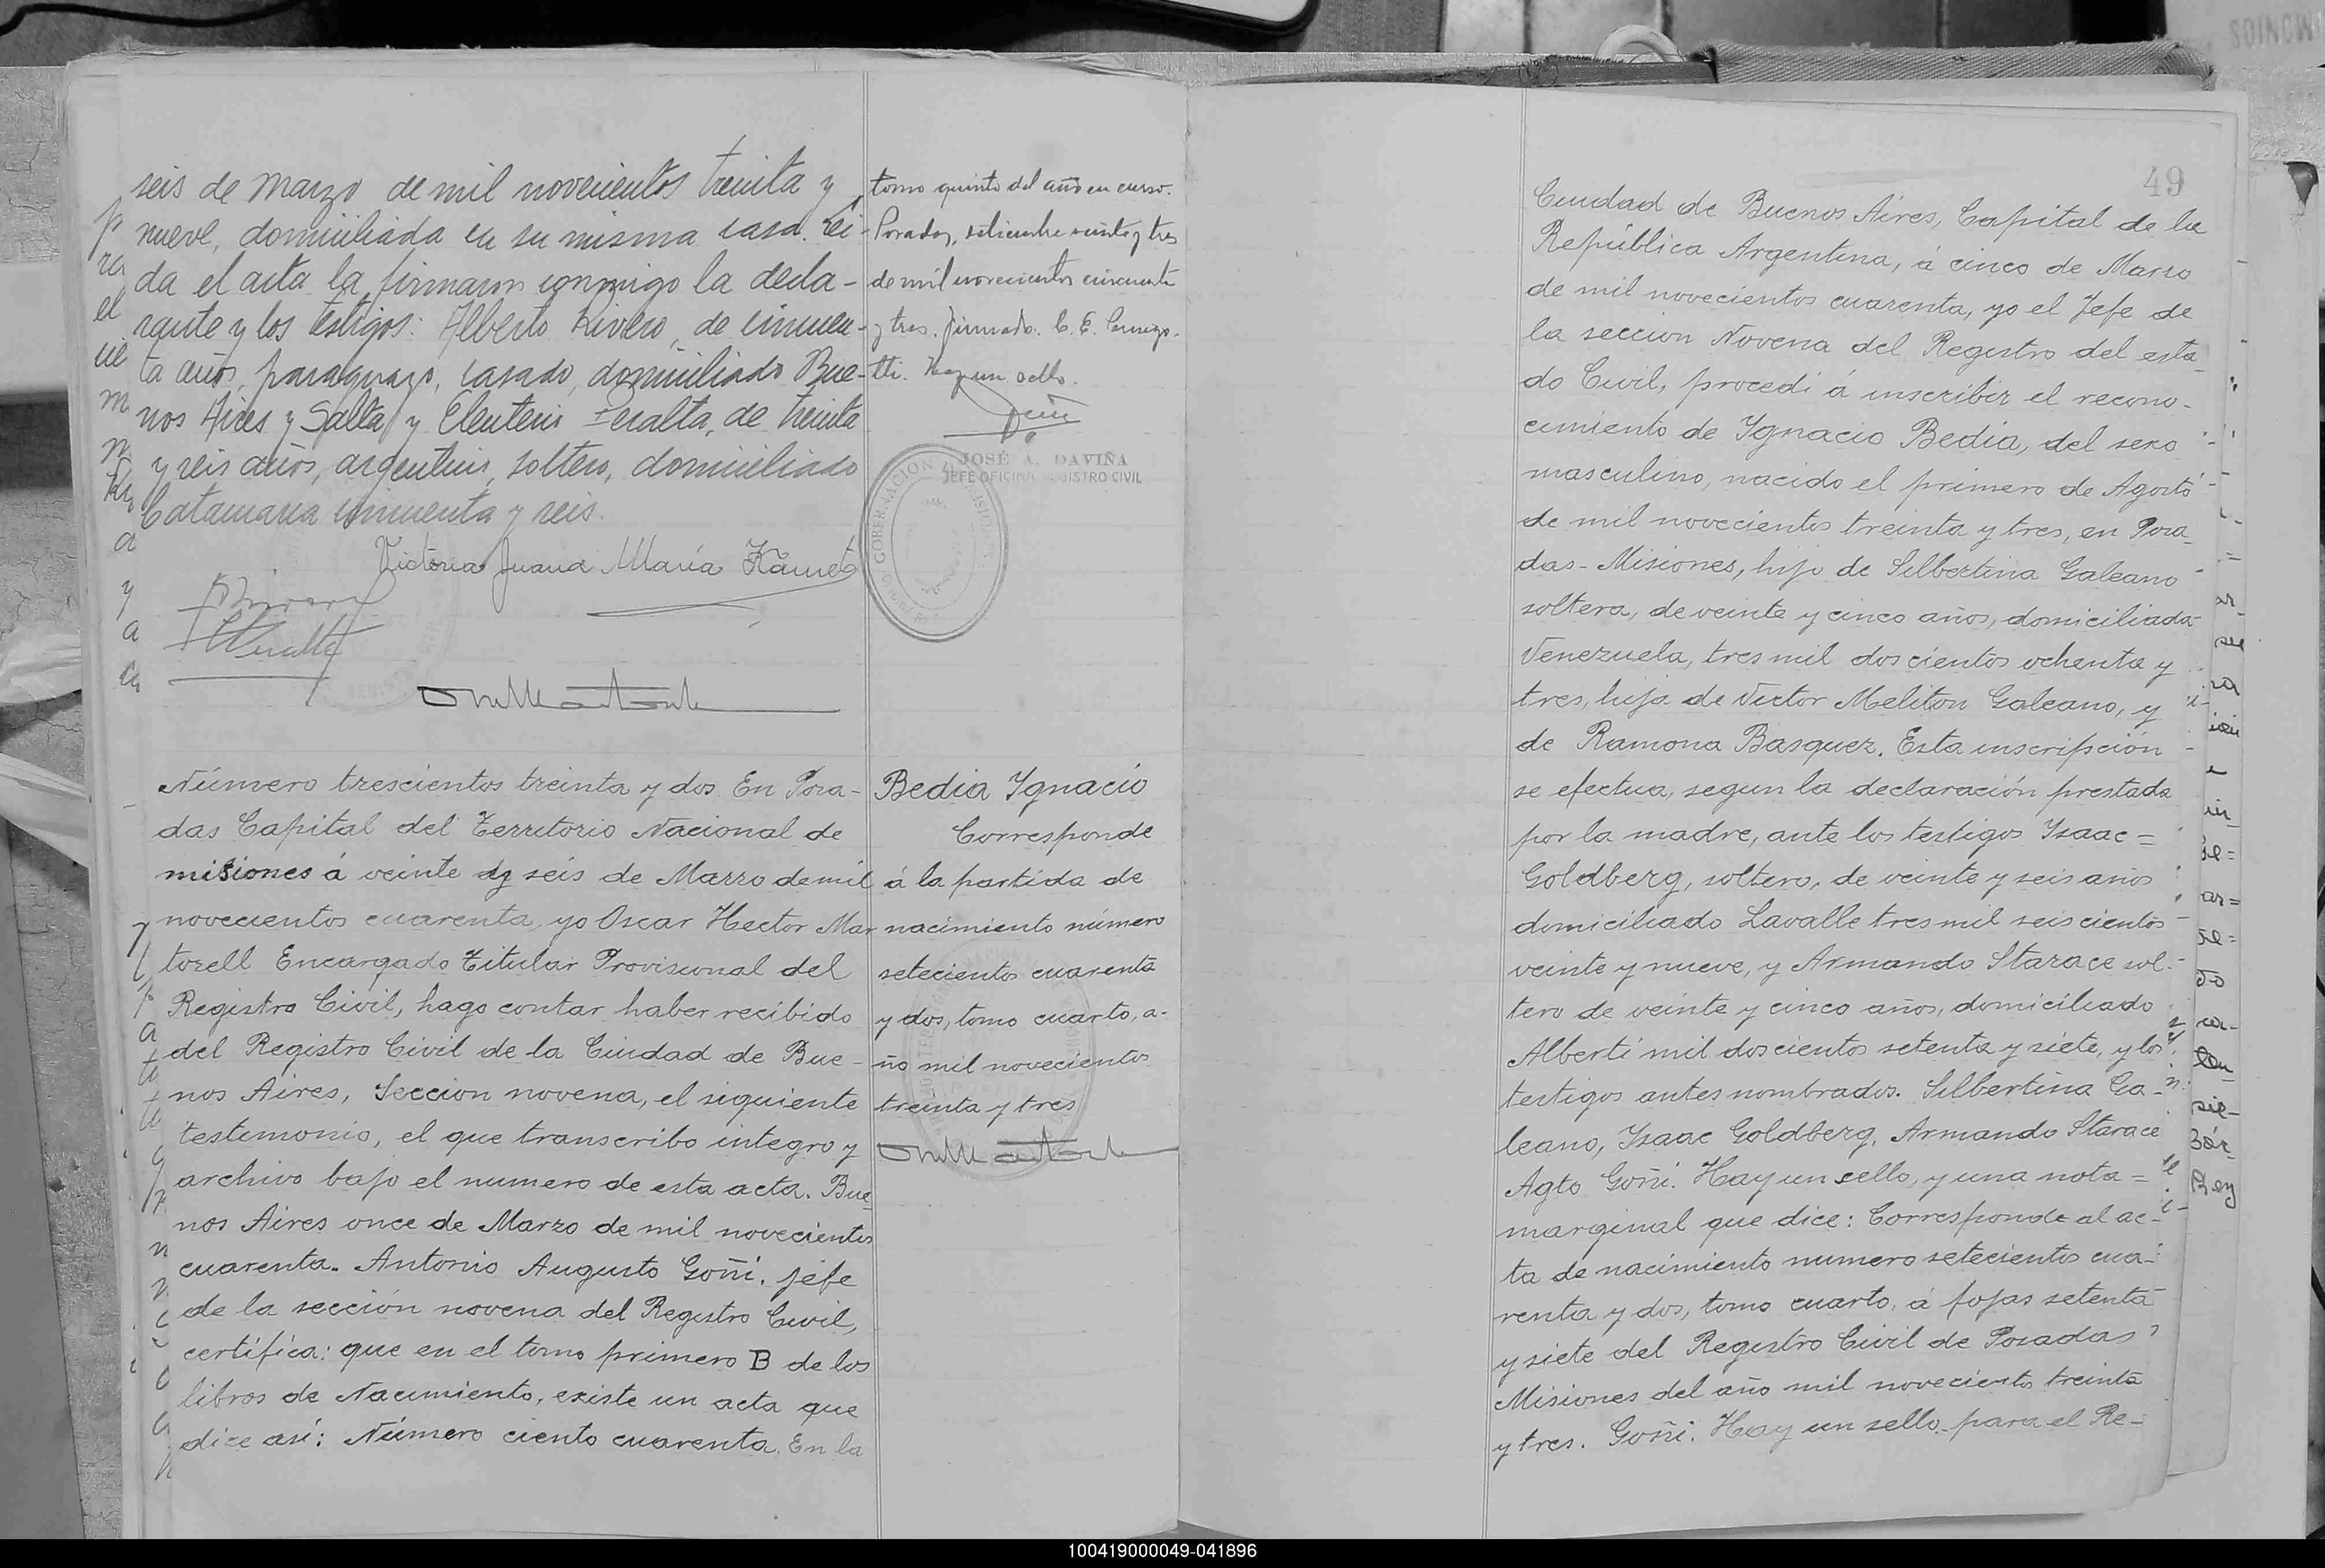 seis de Marzo de mil novecientos treinta y
nueve, domiciliada en su misma casa. Leí-
da el acta la firmaron conmigo la decla-
rante y los testigos: Alberto Rivero, de cincuen-
ta años, paraguayo, casado, domiciliado Bue-
nos Aires y Salta y Eleuterio Peralta, de treinta
y seis años, argentino, soltero, domiciliado
Catamarca cincuenta y seis.
Victoria Juana María
tomo quinto del año en curso.
Posadas, setiembre veinte y tres
de mil novecientos cincuenta
y tres. firmado. C. E.
Hay un sello.
JOSÉ A. DAVIÑA
JEFE OFICINA REGISTRO CIVIL
Número trescientos treinta y dos En Posa-
das Capital del Territorio Nacional de
misiones á veinte y seis de Marzo de mil
novecientos cuarenta, yo Oscar Hector Mar
torell Encargado Titular Provisional del
Registro Civil, hago contar haber recibido
del Registro Civil de la Ciudad de Bue-
nos Aires, Seccion novena, el siguiente
testimonio, el que transcribo integro y
archivo bajo el numero de esta acta. Bue
nos Aires once de Marzo de mil novecientos
cuarenta. Antonio Augusto Goñi. jefe
de la sección novena del Registro Civil,
certifica: que en el tomo primero B de los
libros de Nacimiento, existe un acta que
dice así: Número ciento cuarenta. En la
Bedia Ygnacio
Corresponde
á la partida de
nacimiento número
setecientos cuarenta
y dos, tomo cuarto, a-
ño mil novecientos
treinta y tres
49
Ciudad de Buenos Aires, Capital de la
República Argentina, á cinco de Marzo
de mil novecientos cuarenta, yo el Jefe de
la seccion Novena del Registro del esta
do Civil, procedí á inscribir el recono-
cimiento de Ygnacio Bedia, del sexo
masculino, nacido el primero de Agosto
de mil novecientos treinta y tres, en Posa
das- Misiones, hijo de Silbertina Galeano
soltera, de veinte y cinco años, domiciliada
Venezuela, tres mil doscientos ochenta y
tres, hija de Victor Meliton Galeano, y
de Ramona Basquez. Esta inscripción
se efectua, segun la declaración prestada
por la madre, ante los testigos Ysaac=
Goldberg, soltero, de veinte y seis años
domiciliado Lavalle tres mil seiscientos
veinte y nueve, y Armando Starace sol-
tero de veinte y cinco años, domiciliado
Alberti mil doscientos setenta y siete, y los
testigos antes nombrados. Silbertina Ga-
leano, Ysaac Goldberg. Armando Starace
Agto Goñi. Hay un sello, y una nota=
marginal que dice: Corresponde al ac-
ta de nacimiento numero setecientos cua-
renta y dos, tomo cuarto, á fojas setenta
y siete del Registro Civil de Posadas
Misiones del año mil novecientos treinta
y tres. Goñi. Hay un sello. para el Re-
100419000049-041896